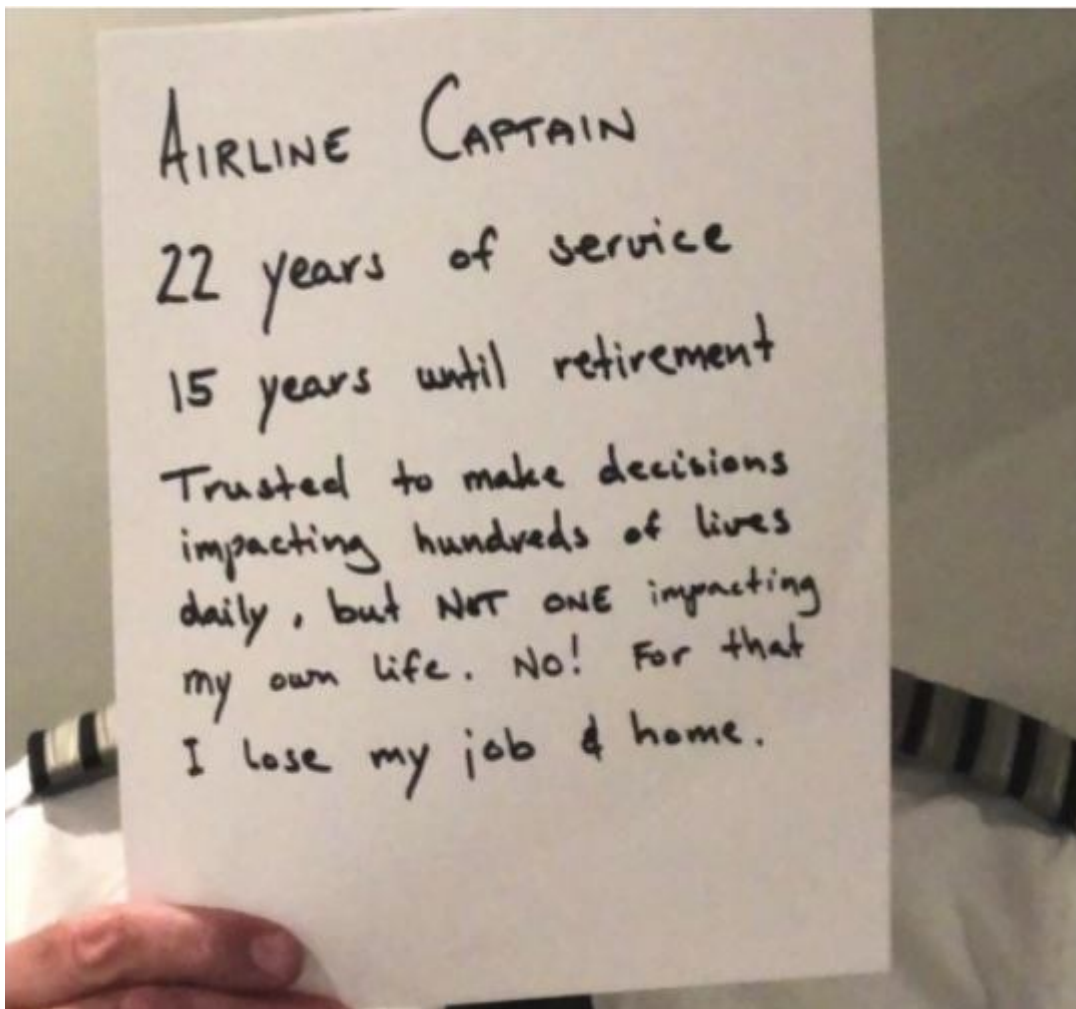 AIRLINE CAPTAIN
22 years of service
15 years until retirement
Trusted to make decisions
impacting hundreds of lives
daily, but NOT ONE impacting
my own life. NO! For that
I lose my job & home.